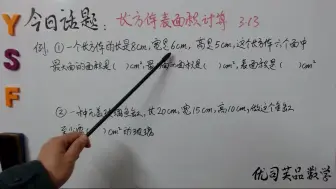 今日话题: 长方体表面积计算 3.13
YSF
例. ① 一个长方体的长是8cm, 宽是6cm, 高是5cm, 这个长方六个面中
最大面的面积是( )cm², 最 面积是( )cm², 表面积是( )cm²
② 一种无盖 长20cm, 宽15cm, 高10cm, 做这个鱼缸
至少 ( )cm²的玻璃
优司英品数学